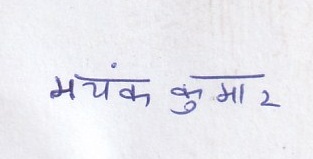 मयंक कुमार